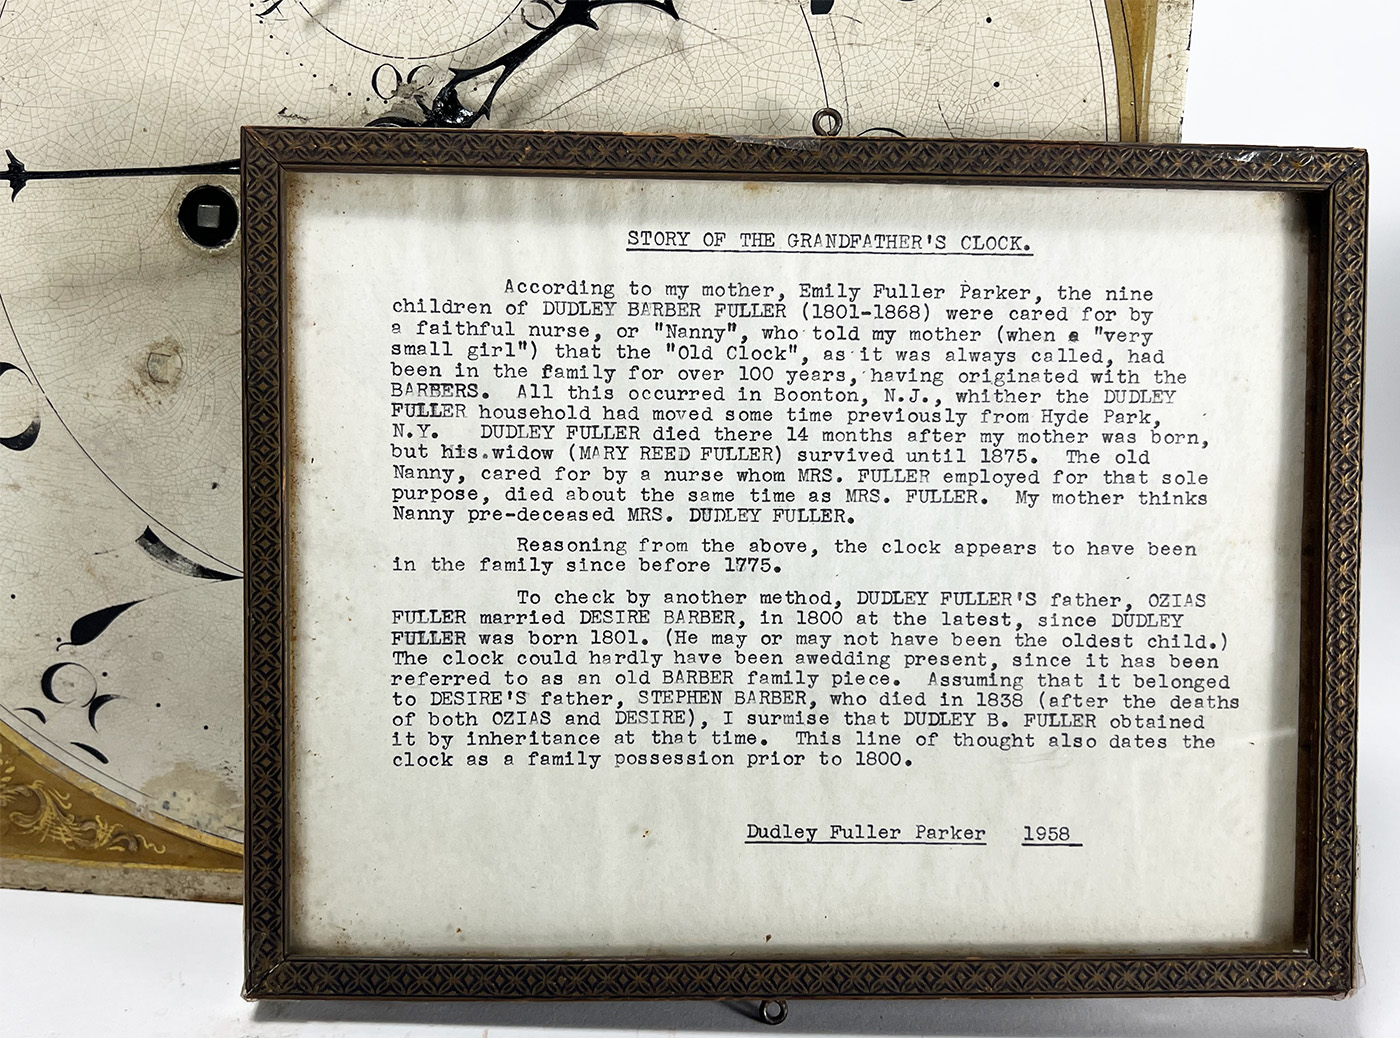 STORY OF THE GRANDFATHER'S CLOCK.
According to my mother, Emily Fuller Parker, the nine
children of DUDLEY BARBER FULLER (1801-1868) were cared for by
a faithful nurse, or "Nanny", who told my mother (when a "very
small girl") that the "Old Clock", as it was always called, had
been in the family for over 100 years, having originated with the
BARBERS. All this occurred in Boonton, N.J., whither the DUDLEY
FULLER household had moved some time previously from Hyde Park,
N.Y. DUDLEY FULLER died there 14 months after my mother was born,
but his widow (MARY REED FULLER) survived until 1875. The old
Nanny, cared for by a nurse whom MRS. FULLER employed for that sole
purpose, died about the same time as MRS. FULLER. My mother thinks
Nanny pre-deceased MRS. DUDLEY FULLER.
Reasoning from the above, the clock appears to have been
in the family since before 1775.
To check by another method, DUDLEY FULLER'S father, OZIAS
FULLER married DESIRE BARBER, in 1800 at the latest, since DUDLEY
FULLER was born 1801. (He may or may not have been the oldest child.)
The clock could hardly have been awedding present, since it has been
referred to as an old BARBER family piece. Assuming that it belonged
to DESIRE'S father, STEPHEN BARBER, who died in 1838 (after the deaths
of both OZIAS and DESIRE), I surmise that DUDLEY B. FULLER obtained
it by inheritance at that time. This line of thought also dates the
clock as a family possession prior to 1800.
Dudley Fuller Parker 1958